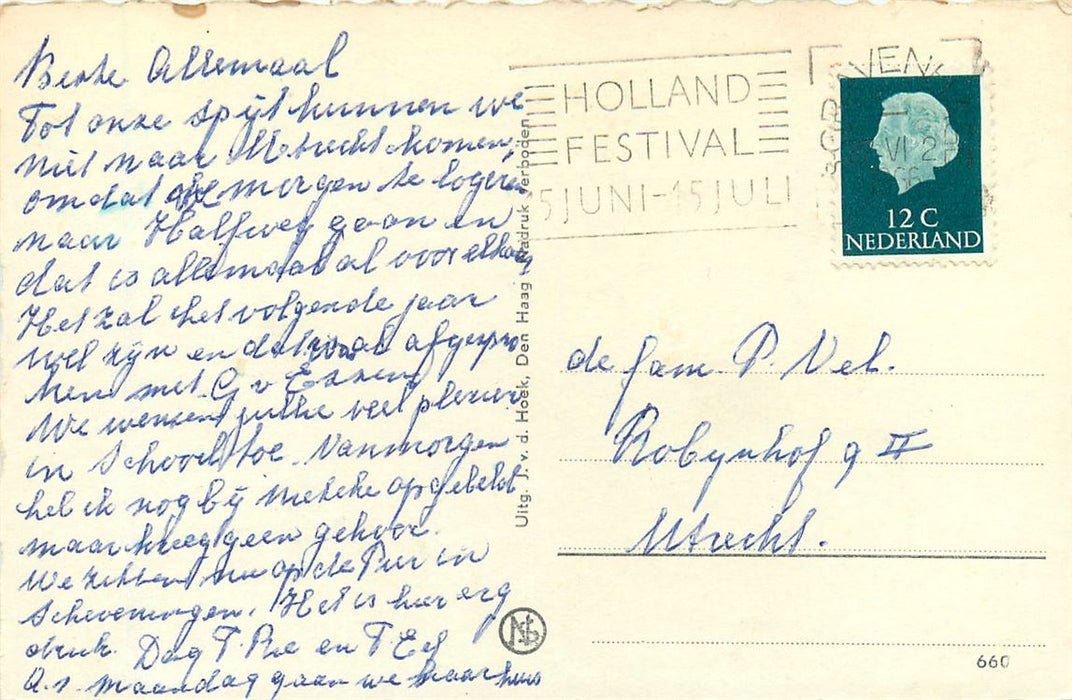 Beste Allemaal
Tot onze spijt kunnen we
niet naar Utrecht komen,
omdat we morgen te logeren
naar Halfweg gaan en
dat is allemaal al voor elkaar
Het zal het volgende jaar
wel zijn en dat was al afgespro
ken met G v Essen
We wensen jullie veel plezier
in Schoorl toe. Vanmorgen
heb ik nog bij Mieke opgebeld
maar kreeg geen gehoor.
We zitten nu op de Pier in
Scheveningen. Het is hier erg
druk. Dag T. Rie en T Eef
a.s. maandag gaan we naar huis
Uitg. J. v. d. Hoek, Den Haag Nadruk verboden
HOLLAND
FESTIVAL
15 JUNI-15 JULI
12 C
NEDERLAND
de fam P. Vel.
Robynhof 9 II
Utrecht.
660